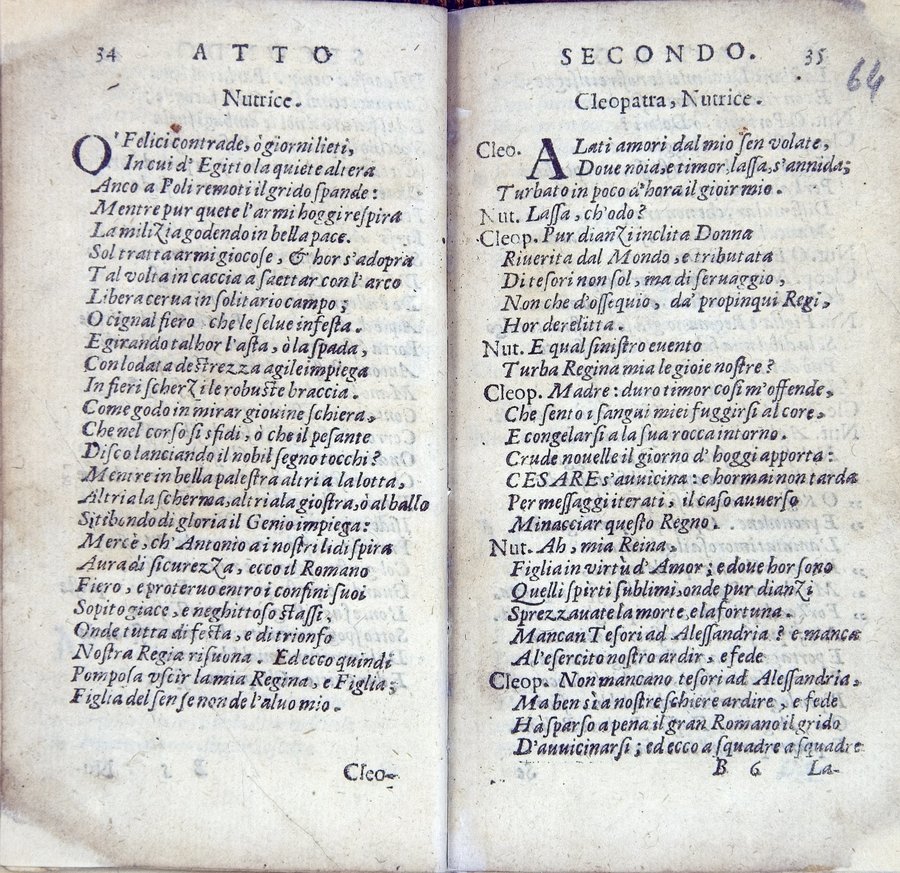 34 ATTO
Nutrice.
O' Felici contrade, ò giorni lieti,
In cui d' Egitto la quiete altera
Anco a Poli remoti il grido spande:
Mentre pur quete l'armi hoggi respira
La milizia godendo in bella pace.
Sol tratta armi giocose, & hor s'adopra
Tal volta in caccia a saettar con l'arco
Libera cerua in solitario campo,
O cignal fiero che le selue infesta.
E girando talhor l'asta, ò la spada,
Con lodata destrezza agile impiega
In fieri scherzi le robuste braccia.
Come godo in mirar giouine schiera,
Che nel corso si sfidi, ò che il pesante
Disco lanciando il nobil segno tocchi?
Mentre in bella palestra altri a la lotta,
Altri a la scherma, altri a la giostra, ò al ballo
Sitibondo di gloria il Genio impiega:
Mercè, ch' Antonio a i nostri lidi spira
Aura di sicurezza, ecco il Romano
Fiero, e proteruo entro i confini suoi
Sopito giace, e neghittoso stassi,
Onde tutta di festa, e di trionfo
Nostra Regia risuona. Ed ecco quindi
Pomposa vscir la mia Regina, e Figlia;
Figlia del sen se non de l'aluo mio.
Cleo-
SECONDO. 35
64
Cleopatra, Nutrice.
Cleo. ALati amori dal mio sen volate,
Doue noia, e timor, lassa, s'annida;
Turbato in poco d'hora il gioir mio.
Nut. Lassa, ch'odo?
Cleop. Pur dianzi inclita Donna
Riuerita dal Mondo, e tributata
Di tesori non sol, ma di seruaggio,
Non che d'ossequio, da' propinqui Regi,
Hor derelitta.
Nut. E qual sinistro euento
Turba Regina mia le gioie nostre?
Cleop. Madre: duro timor cosi m'offende,
Che sento i sangui miei fuggirsi al core,
E congelarsi a la sua rocca intorno.
Crude nouelle il giorno d' hoggi apporta:
CESARE s'auuicina: e hormai non tarda
Per messaggi iterati, il caso auuerso
Minacciar questo Regno.
Nut. Ah, mia Reina,
Figlia in virtù d' Amor; e doue hor sono
Quelli spirti sublimi, onde pur dianzi
Sprezzauate la morte, e la fortuna.
Mancan Tesori ad Alessandria? e manca
A l'esercito nostro ardir, e fede
Cleop. Non mancano tesori ad Alessandria,
Ma ben sì a nostre schiere ardire, e fede
Hà sparso a pena il gran Romano il grido
D'auuicinarsi; ed ecco a squadre a squadre
B 6 La-